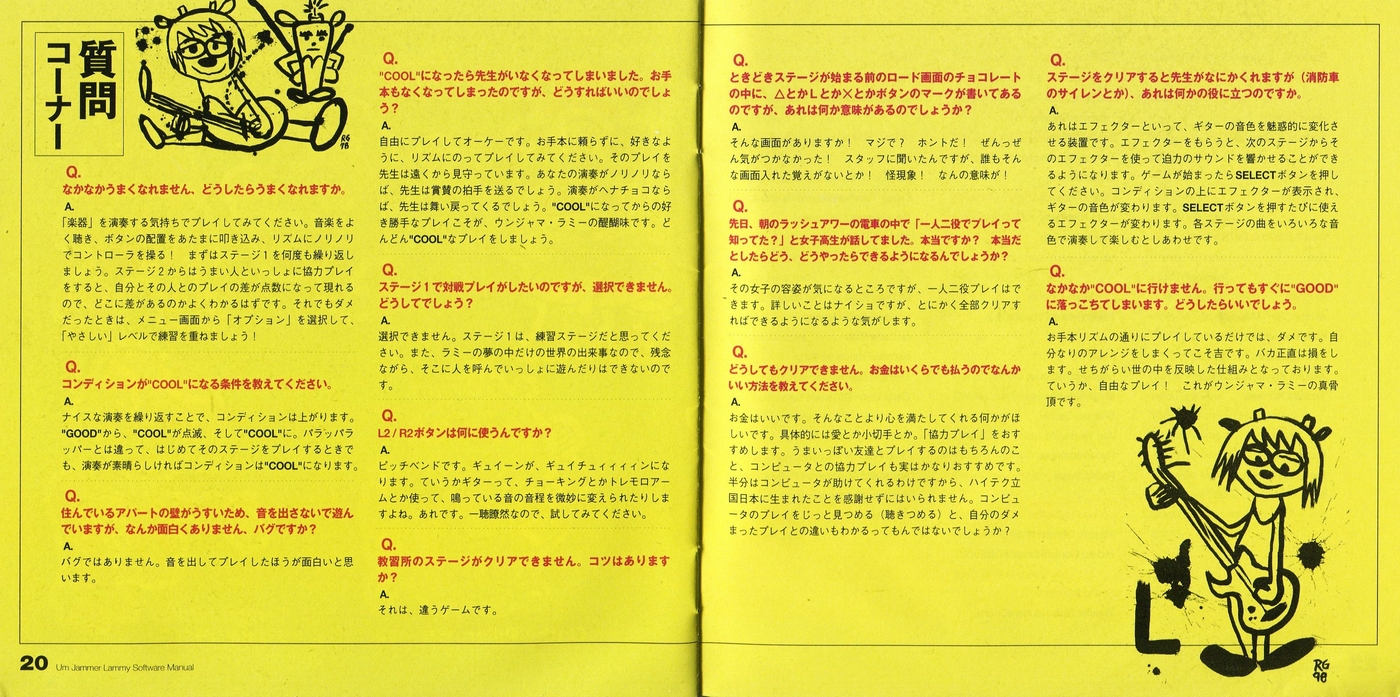 質問
コーナー
Q.
なかなかうまくなれません、どうしたらうまくなれますか。
A.
「楽器」を演奏する気持ちでプレイしてみてください。音楽をよ
く聴き、ボタンの配置をあたまに叩き込み、リズムにノリノリ
でコントローラを操る！　まずはステージ1を何度も繰り返し
ましょう。ステージ2からはうまい人といっしょに協力プレイ
をすると、自分とその人とのプレイの差が点数になって現れる
ので、どこに差があるのかよくわかるはずです。それでもダメ
だったときは、メニュー画面から「オプション」を選択して、
「やさしい」レベルで練習を重ねましょう！
Q.
コンディションが"COOL"になる条件を教えてください。
A.
ナイスな演奏を繰り返すことで、コンディションは上がります。
"GOOD"から、"COOL"が点滅、そして"COOL"に。パラッパラ
ッパーとは違って、はじめてそのステージをプレイするときで
も、演奏が素晴らしければコンディションは"COOL"になります。
Q.
住んでいるアパートの壁がうすいため、音を出さないで遊ん
でいますが、なんか面白くありません、バグですか？
A.
バグではありません。音を出してプレイしたほうが面白いと思
います。
Q.
"COOL"になったら先生がいなくなってしまいました。お手
本もなくなってしまったのですが、どうすればいいのでしょ
う？
A.
自由にプレイしてオーケーです。お手本に頼らずに、好きなよ
うに、リズムにのってプレイしてみてください。そのプレイを
先生は遠くから見守っています。あなたの演奏がノリノリなら
ば、先生は賞賛の拍手を送るでしょう。演奏がヘナチョコなら
ば、先生は舞い戻ってくるでしょう。"COOL"になってからの好
き勝手なプレイこそが、ウンジャマ・ラミーの醍醐味です。ど
んどん"COOL"なプレイをしましょう。
Q.
ステージ1で対戦プレイがしたいのですが、選択できません。
どうしてでしょう？
A.
選択できません。ステージ1は、練習ステージだと思ってくだ
さい。また、ラミーの夢の中だけの世界の出来事なので、残念
ながら、そこに人を呼んでいっしょに遊んだりはできないので
す。
Q.
L2 / R2ボタンは何に使うんですか？
A.
ピッチベンドです。ギュイーンが、ギュイチュィィィィンにな
ります。ていうかギターって、チョーキングとかトレモロアー
ムとか使って、鳴っている音の音程を微妙に変えられたりしま
すよね。あれです。一聴瞭然なので、試してみてください。
Q.
教習所のステージがクリアできません。コツはあります
か？
A.
それは、違うゲームです。
Q.
ときどきステージが始まる前のロード画面のチョコレート
の中に、△とかLとか×とかボタンのマークが書いてある
のですが、あれは何か意味があるのでしょうか？
A.
そんな画面がありますか！　マジで？　ホントだ！　ぜんっぜ
ん気がつかなかった！　スタッフに聞いたんですが、誰もそん
な画面入れた覚えがないとか！　怪現象！　なんの意味が！
Q.
先日、朝のラッシュアワーの電車の中で「一人二役でプレイって
知ってた？」と女子高生が話してました。本当ですか？　本当だ
としたらどう、どうやったらできるようになるんでしょうか？
A.
その女子の容姿が気になるところですが、一人二役プレイはで
きます。詳しいことはナイショですが、とにかく全部クリアす
ればできるようになるような気がします。
Q.
どうしてもクリアできません。お金はいくらでも払うのでなんか
いい方法を教えてください。
A.
お金はいいです。そんなことより心を満たしてくれる何かがほ
しいです。具体的には愛とか小切手とか。「協力プレイ」をおす
すめします。うまいっぽい友達とプレイするのはもちろんのこ
と、コンピュータとの協力プレイも実はかなりおすすめです。
半分はコンピュータが助けてくれるわけですから、ハイテク立
国日本に生まれたことを感謝せずにはいられません。コンピュ
ータのプレイをじっと見つめる（聴きつめる）と、自分のダメ
まったプレイとの違いもわかるってもんではないでしょうか？
Q.
ステージをクリアすると先生がなにかくれますが（消防車
のサイレンとか）、あれは何かの役に立つのですか。
A.
あれはエフェクターといって、ギターの音色を魅惑的に変化さ
せる装置です。エフェクターをもらうと、次のステージからそ
のエフェクターを使って迫力のサウンドを響かせることができ
るようになります。ゲームが始まったらSELECTボタンを押し
てください。コンディションの上にエフェクターが表示され、
ギターの音色が変わります。SELECTボタンを押すたびに使え
るエフェクターが変わります。各ステージの曲をいろいろな音
色で演奏して楽しむとしあわせです。
Q.
なかなか"COOL"に行けません。行ってもすぐに"GOOD"
に落っこちてしまいます。どうしたらいいでしょう。
A.
お手本リズムの通りにプレイしているだけでは、ダメです。自
分なりのアレンジをしまくってこそ吉です。バカ正直は損をし
ます。せちがらい世の中を反映した仕組みとなっております。
ていうか、自由なプレイ！　これがウンジャマ・ラミーの真骨
頂です。
RG
98
L
RG
98
20 Um Jammer Lammy Software Manual